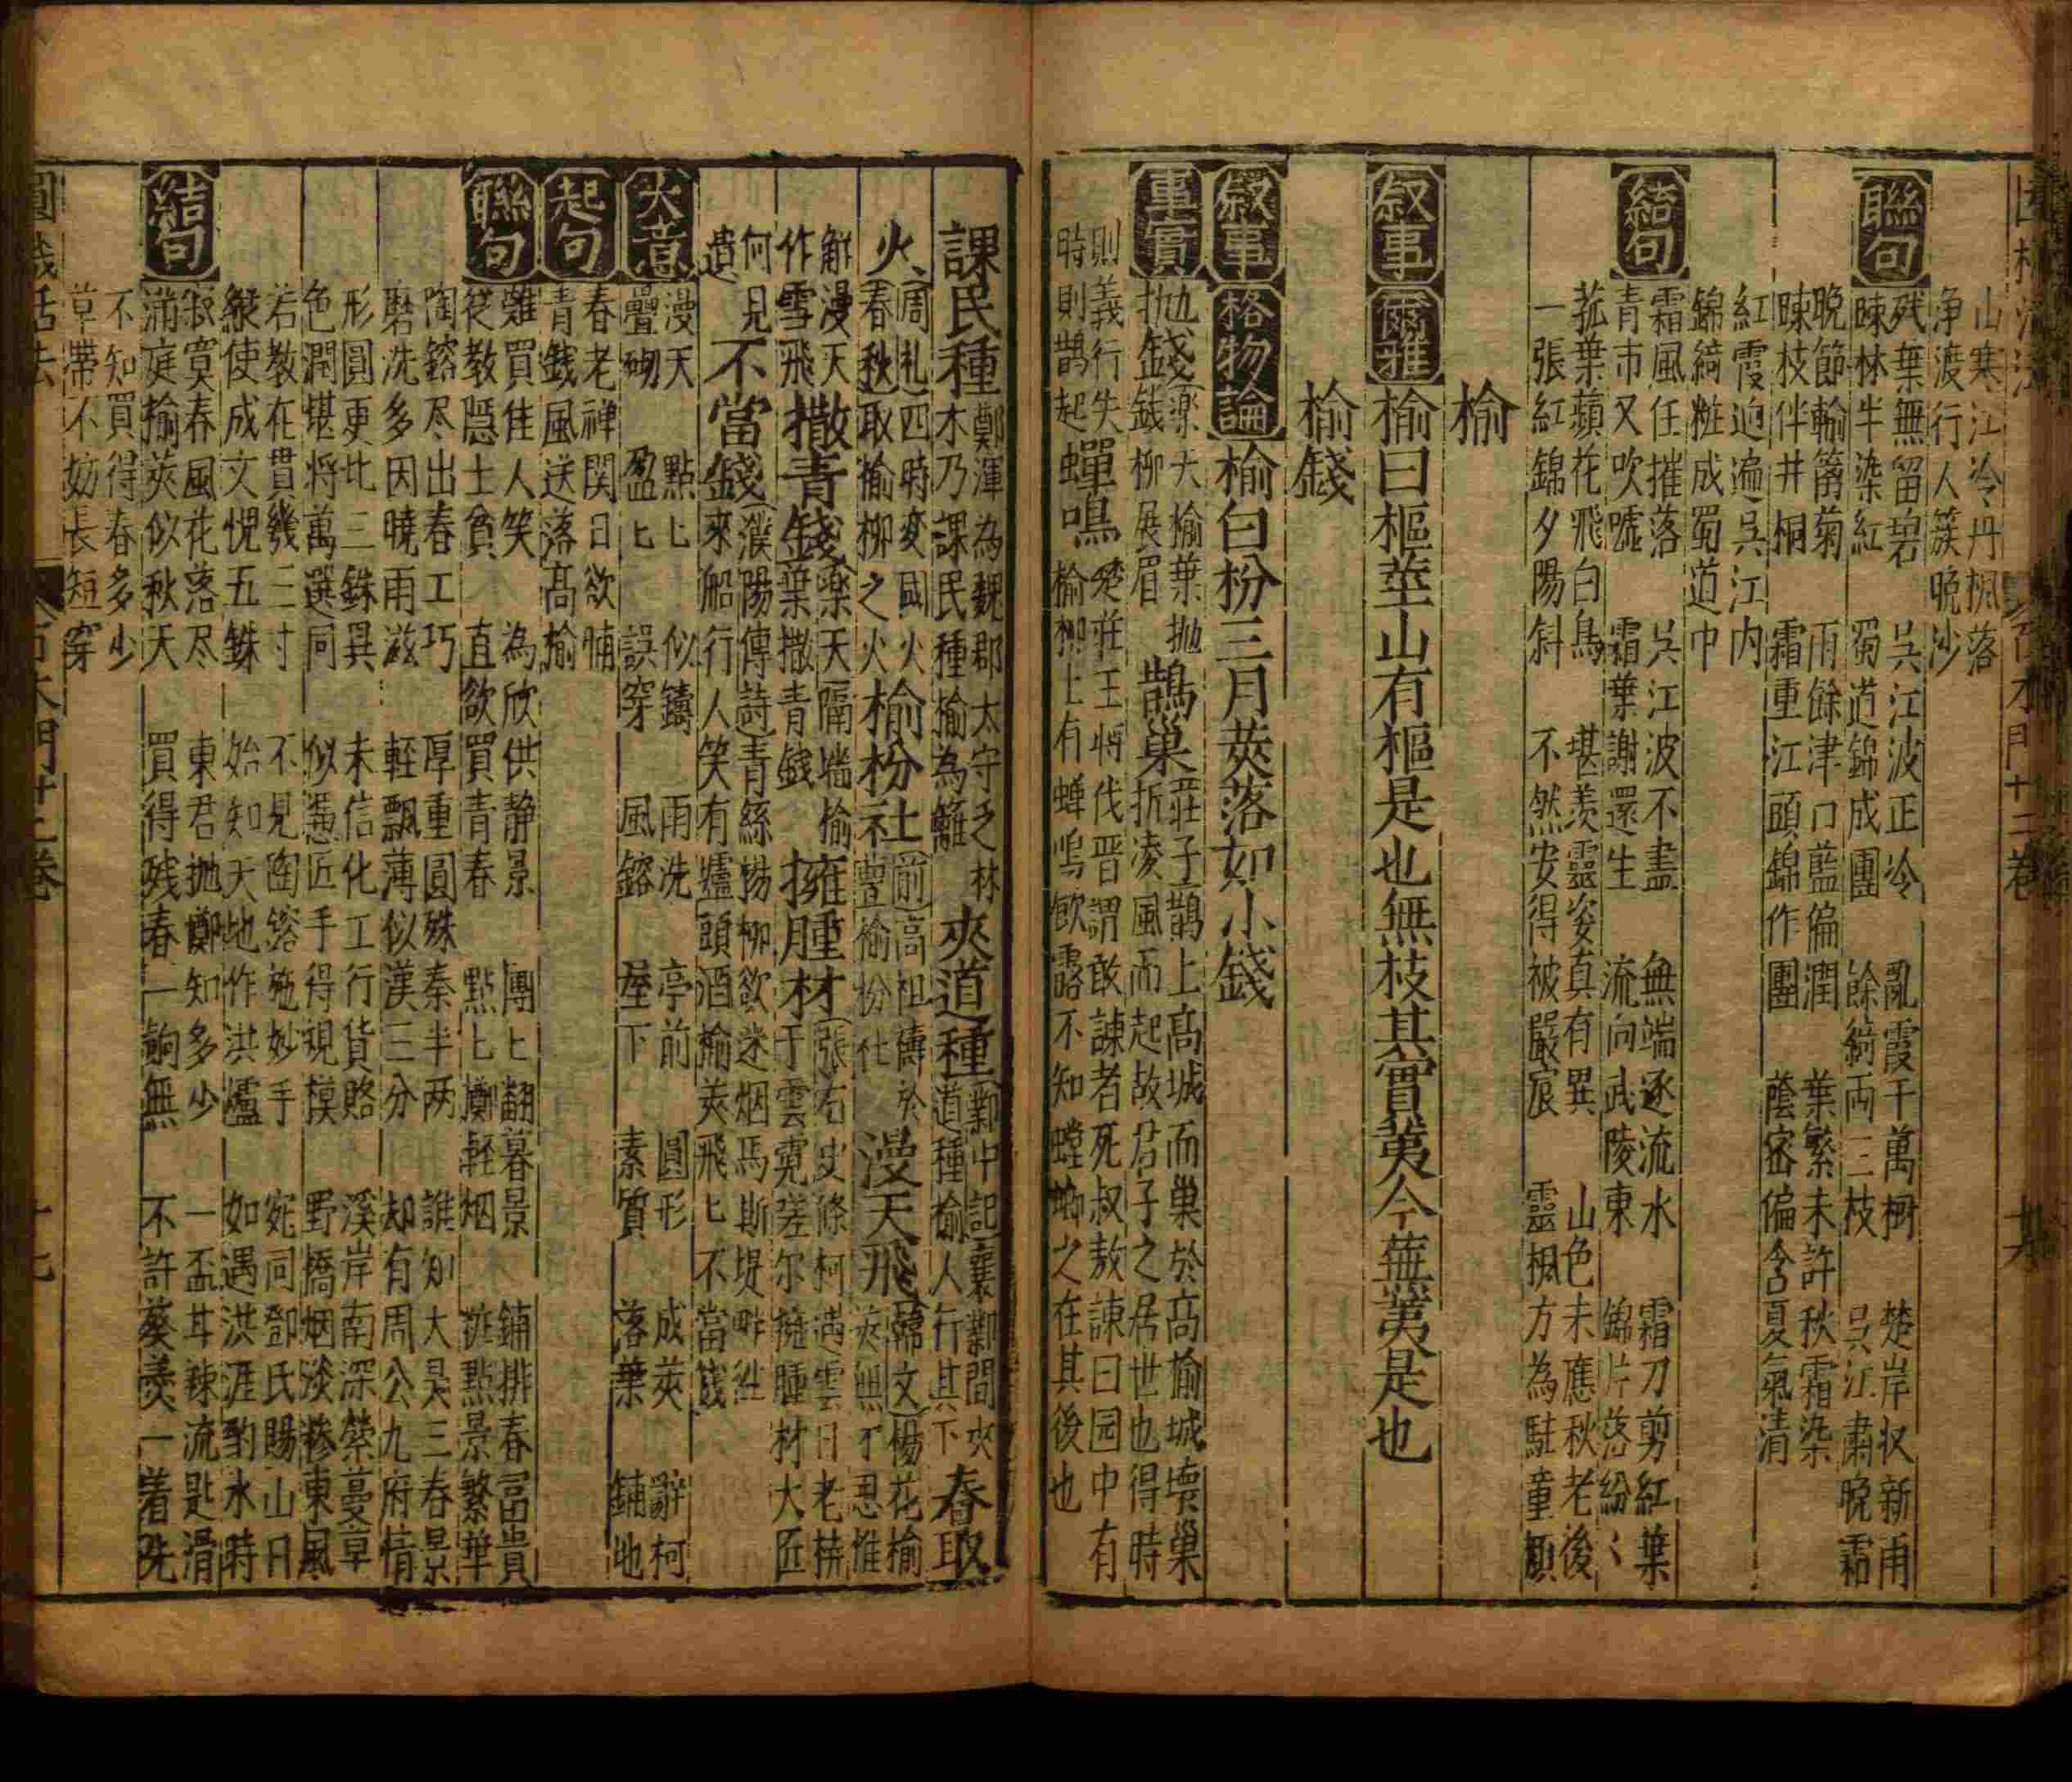 山寒江冷丹楓落
净渡行人簇晚沙
聯句
残葉無留碧　吳江波正冷　亂霞千萬樹　楚岸収新雨
踈林半染紅　蜀道錦成團　餘綺兩三枝　吳江肅晚霜
晚節輸籬菊　雨餘津口藍偏潤　葉繁未許秋霜染
踈枝伴井桐　霜重江頭錦作團　蔭密偏含夏氣清
紅霞逈遍吳江内
錦綺粧成蜀道巾
結句
霜風任摧落　吳江波不盡　無端逐流水　霜刀剪紅葉
青市又吹噓　霜葉謝還生　流向武陵東　錦片落紛〻
菰葉蘋花飛白鳥　堪羨靈姿真有異　山色未應秋老後
一張紅錦夕陽斜　不然安得被嚴宸　靈楓方為駐童顔
榆
叙事
爾雅
榆曰樞莖山有樞是也無枝其實荑今蕪荑是也
榆錢
叙事
格物論
榆白枌三月莢落如小錢
事實
抛錢
鵲巢
莊子鵲上高城而巢於高榆城壞巢
折凌風而起故君子之居世也得時
則義行失
時則鵲起
蟬鳴
楚莊王將伐晋謂敢諫者死叔敖諫曰园中有
榆柳上有蟬鳴飲露不知螳螂之在其後也
課民種
鄭渾為魏郡太守乏林
木乃課民種榆為籬
夾道種
鄴中記襄鄴間夾
道種榆人行其下
春取
火
周礼四時変国火
春秋取榆柳之火
榆枌社
前高祖禱於
豊榆枌社
漫天飛
韓文楊花榆
莢無才思惟
解漫天
作雪飛
撒青錢
樂天隔墻榆
葉撒青錢
擁腫材
張右史滌柯
于雲霓嗟尔擁腫材大匠
何見
遺
不當錢
濮陽傳詩青絲拂柳欲迷烟馬斯堤畔
來船行人笑有壚頭酒榆莢飛匕不當錢
大意
漫天　點匕　似鑄　雨洗　亭前　圓形　成莢　辭柯
疊砌　盈匕　誤穿　風鎔　屋下　素質　落葉　鋪地
起句
春老禅関日欲晡
青錢風送落高榆
聯句
難買佳人笑　為欣供静景　團匕翻暮景　鋪排春富貴
從教隠士貧　直欲買青春　點匕擲輕烟　粧點景繁華
陶鎔尽出春工巧　厚重圓殊秦半两　誰知大昊三春景
磨洗多因曉雨滋　輕飄薄似漢三分　却有周公九府情
形圓更比三銖異　未信化工行貨賂　溪岸南深縈蔓草
色潤堪将萬選同　似憑匠手得規模　野橋烟淡糝東風
若教在貫幾三寸　不見陶鎔施妙手　宛同鄧氏賜山日
縱使成文愧五銖　始知天地作洪爐　如遇洪涯酌水時
結句
寂寞春風花落尽　東君抛擲知多少　一盃耳辣流匙滑
滿庭揄莢似秋天　買得残春一餉無　不許葵羨一著先
不知買得春多少
草帶不妨長短穿